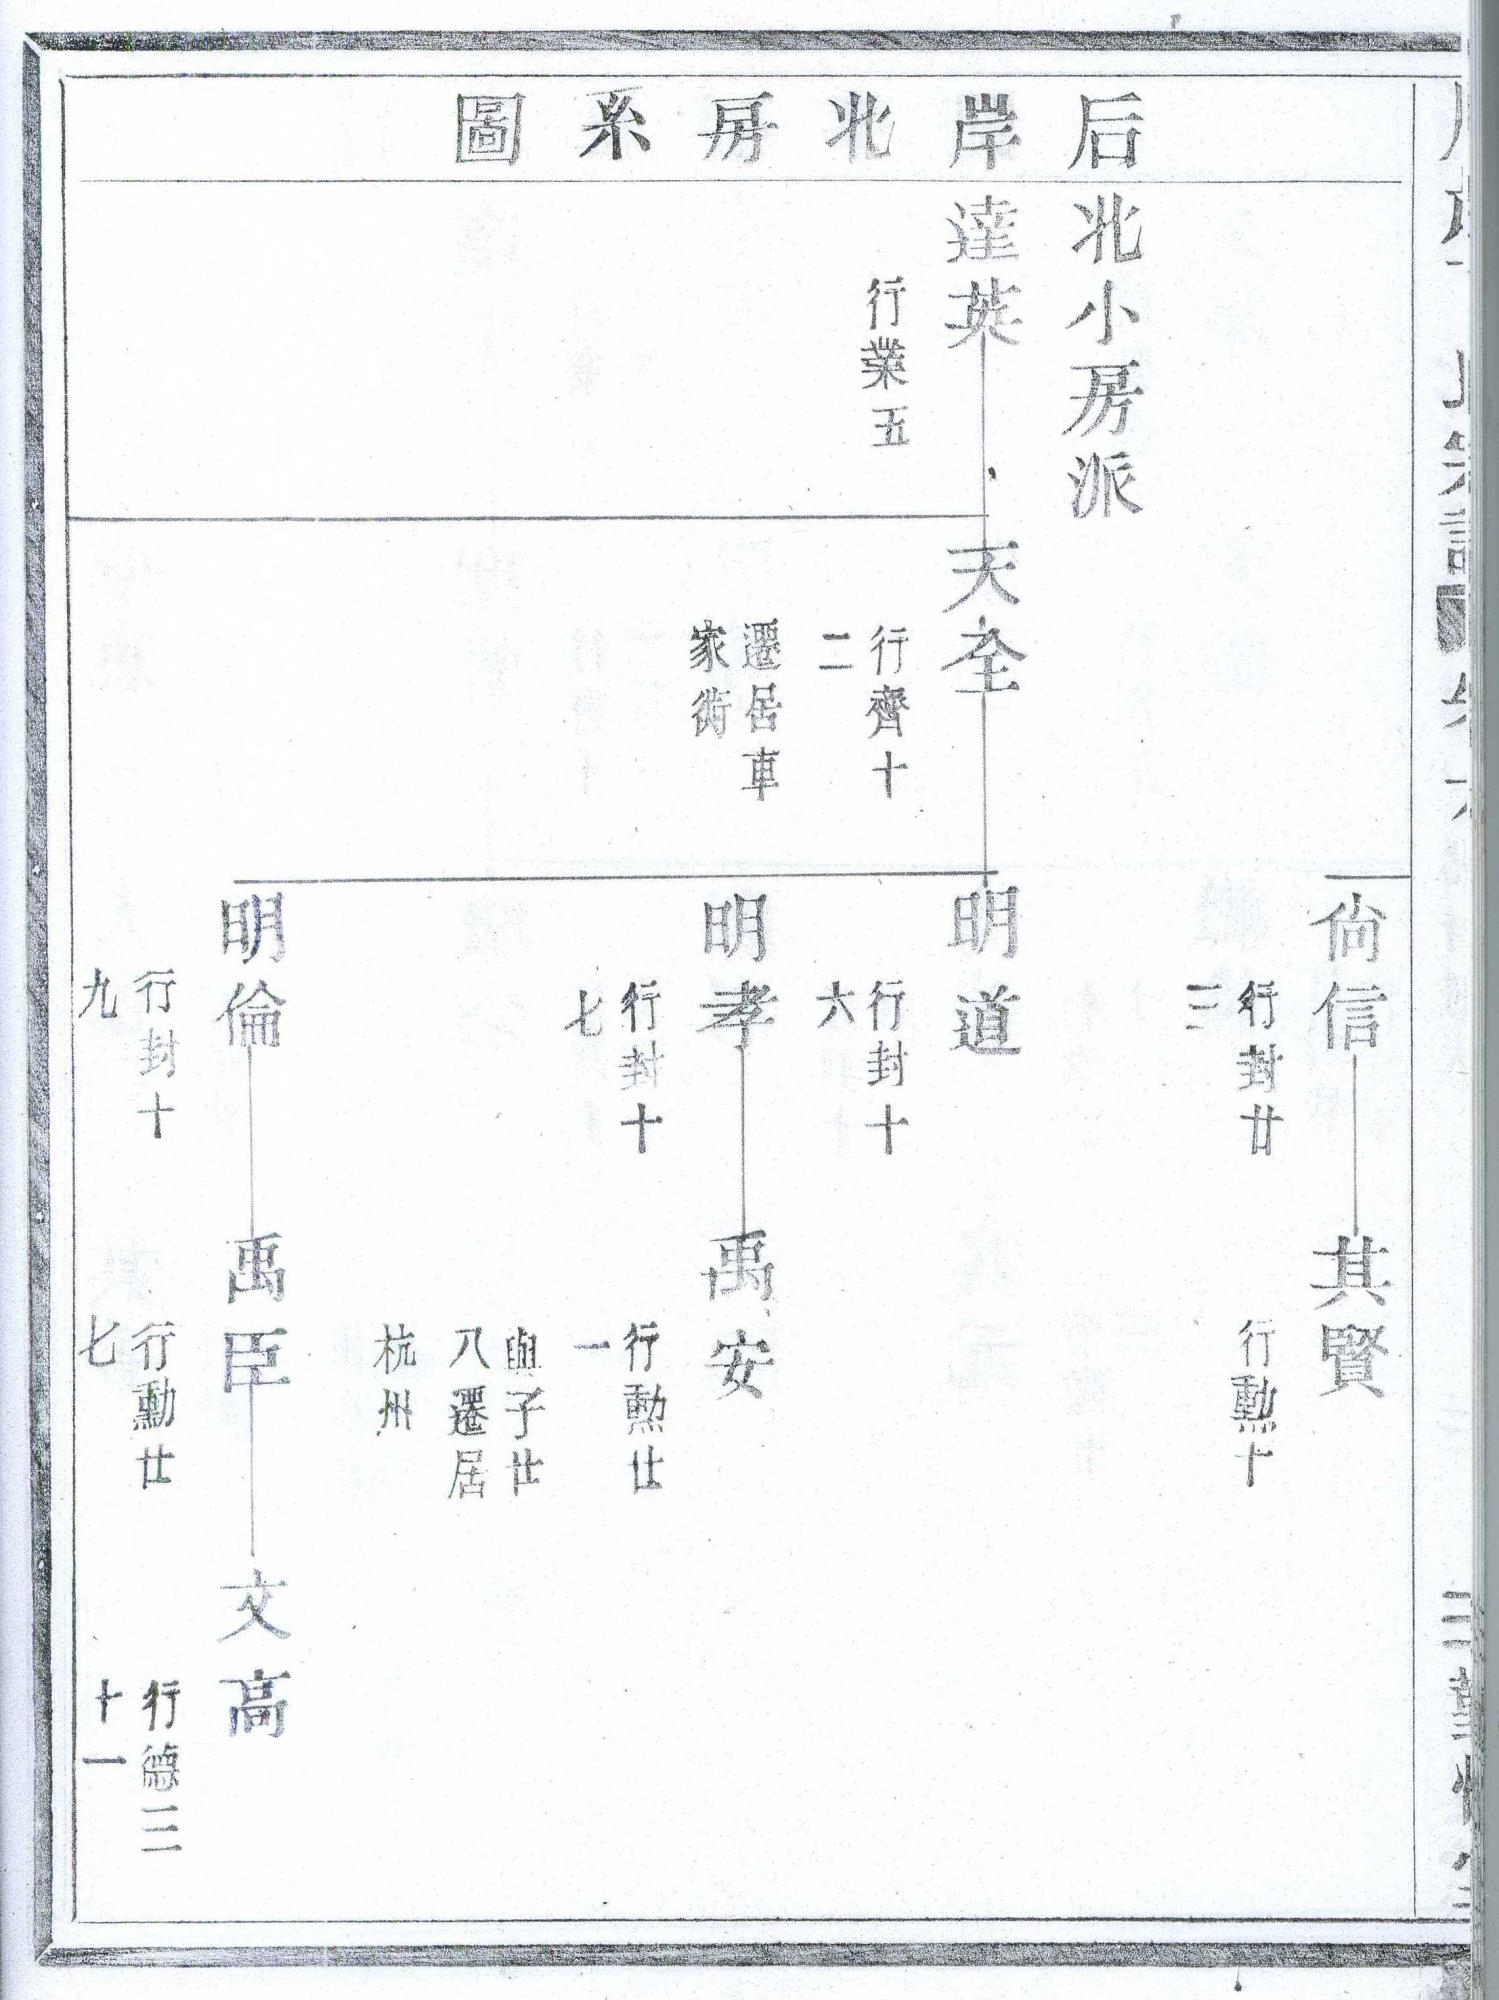 后岸北房系圖
尙信
行封廿
三
其賢
行勲十
北小房派
達英
行業五
天全
行齊十
二
遷居車
家衖
明道
行封十
六
明孝
行封十
七
禹安
行勲廿
一
與子廿
八遷居
杭州
明倫
行封十
九
禹臣
行勳廿
七
文高
行德三
十一